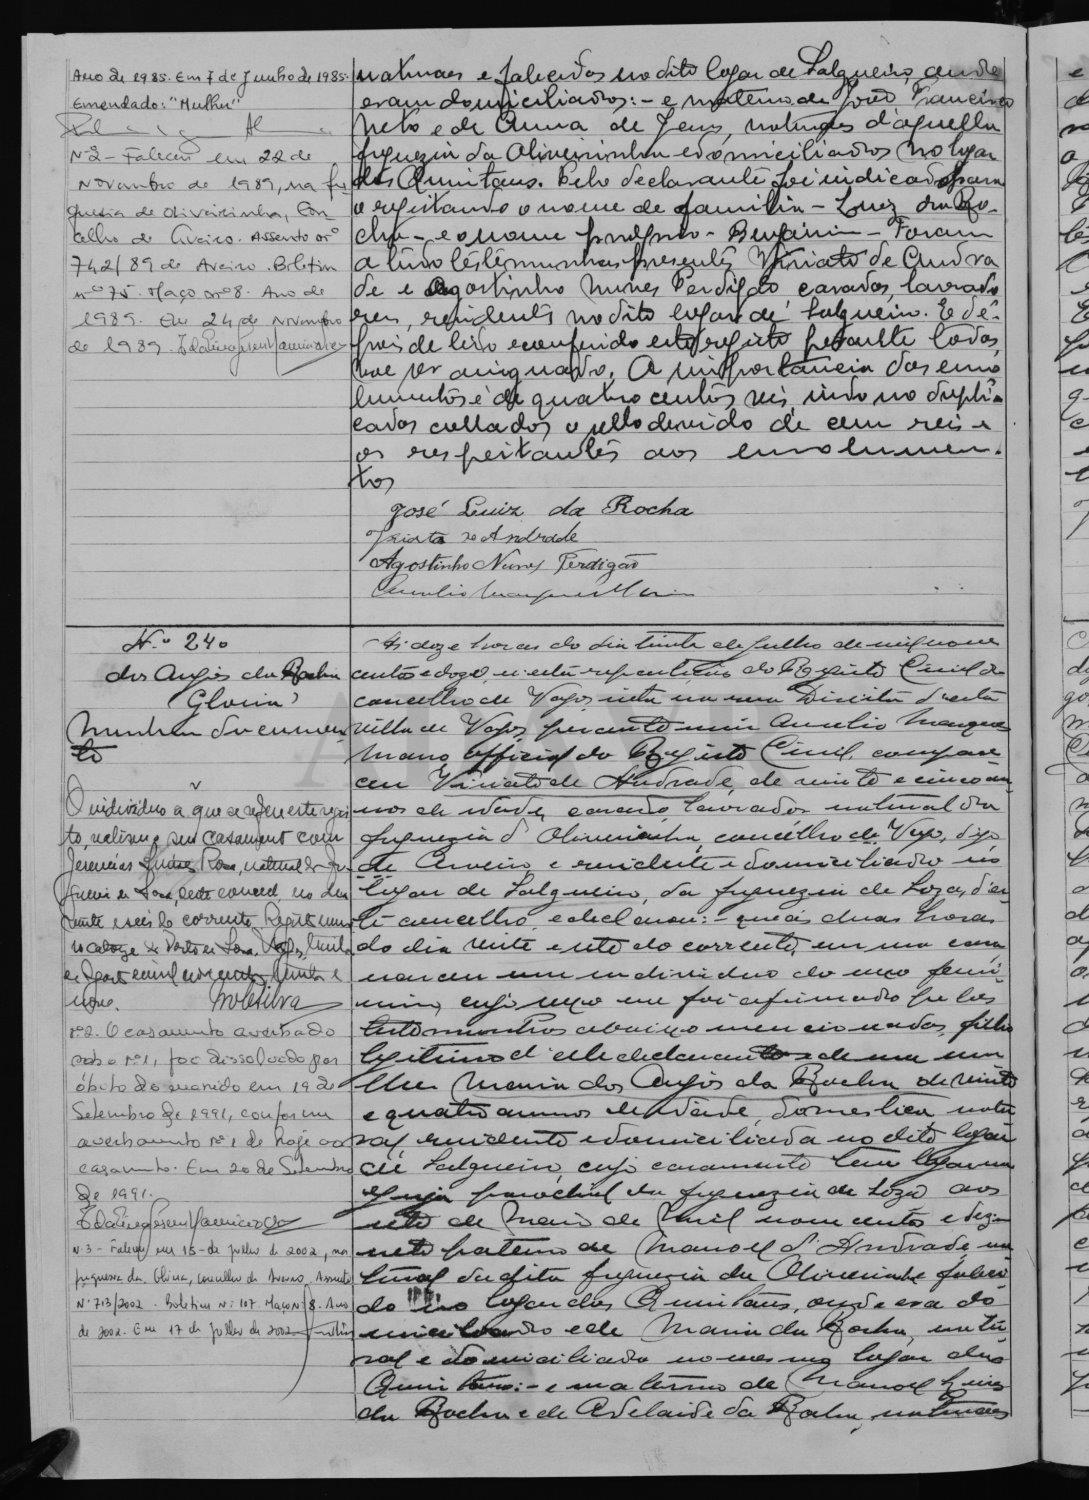 Ano de 1985. Em 7 de Junho de 1985.
Emendado: "Mulher"
Nº2 - Faleceu em 22 de
Novembro de 1989, na fre
guesia de Oliveirinha, Con
celho de Aveiro. Assento nº
742/89 de Aveiro. Boletim
nº 75. Maço nº 8. Ano de
1989. Em 24 de Novembro
de 1989.
naturaes e falecidos no dito logar de Salgueiro, onde
eram domiciliados: - e materno de João Francisco
Neto e de Anna de Jesus, naturaes d'aquella
freguezia da Oliveirinha e domiciliados no logar
das Quintans. Pelo declarante foi indicado para
o registando o nome de familia - Luiz da Ro-
cha - e o nome proprio - Benjamim - Foram
a tudo testemunhas presentes Viriato de Andra
de e Agostinho Nunes Perdigão casados, lavrado
res, residentes no dito logar de Salgueiro. E de-
pois de lido e conferido este registo perante todos
vae ser assignado. A importancia dos emo
lumentos é de quatro centos reis, indo no dupli
cados collados o sello devido de cem reis e
os respeitantes aos emolumen-
tos
José Luiz da Rocha
Viriato de Andrade
Agostinho Nunes Perdigão
N.º 240
dos Anjos da Rocha
Gloria
Nenhum documen
to
O individuo a que se refere este regis
to, realisou seu casamento com
Jeremias Rosa, natural da fre
guesia de Soza, deste concelho, no dia
vinte e seis do corrente. Registo nume
ro catorze
nove.
nº2. O casamento averbado
sob o nº1, foi dissolvido por
óbito do marido em 19 de
Setembro de 1991, conforme
averbamento nº 1 de hoje ao
casamento. Em 20 de Setembro
de 1991.
N.3 - Faleceu em 15 de Julho de 2002, na
freguesia da Glória, concelho de Aveiro. Assento
Nº 713/2002. Boletim N: 107. Maço N: 8. Ano
de 2002. Em 17 de Julho de 2002
Ás doze horas do dia trinta de Julho de mil nove
centos e doze, n'esta repartição do Registo Civil do
concelho de Vagos sita na rua Direita d'esta
villa de Vagos perante mim Aurelio Marques
Mano, official do Registo Civil, compare
ceu Viriato de Andrade, de vinte e cinco an
nos de idade, casado, lavrador natural da
freguezia d'Oliveirinha, concelho de Vagos, digo
de Aveiro, e residente e domiciliado no
logar de Salgueiro, da freguezia de Soza, d'es
te concelho, e declarou: - que ás duas horas
do dia vinte e sete do corrente, em sua casa
nasceu um individuo do sexo femi
nino, cujo sexo me foi afirmado pelas
testemunhas abaixo mencionadas, filho
legitimo d'elle declarante e de sua mu
lher Maria dos Anjos da Rocha de vinte
e quatro annos de idade, domestica, natu
ral, residente e domiciliada no dito logar
de Salgueiro, cujo casamento teve logar na
egreja parochial da freguezia de Soza aos
sete de Maio de mil nove centos e deze
sete paterno de Manoel d'Andrade na
tural da dita freguezia da Oliveirinha faleci
do no logar das Quintãns, onde era do
miciliado e de Maria da Rocha, natu
ral e domiciliada no mesmo logar das
Quintãns: - e materno de Manoel Luiz
da Rocha e de Adelaide da Rocha, naturaes